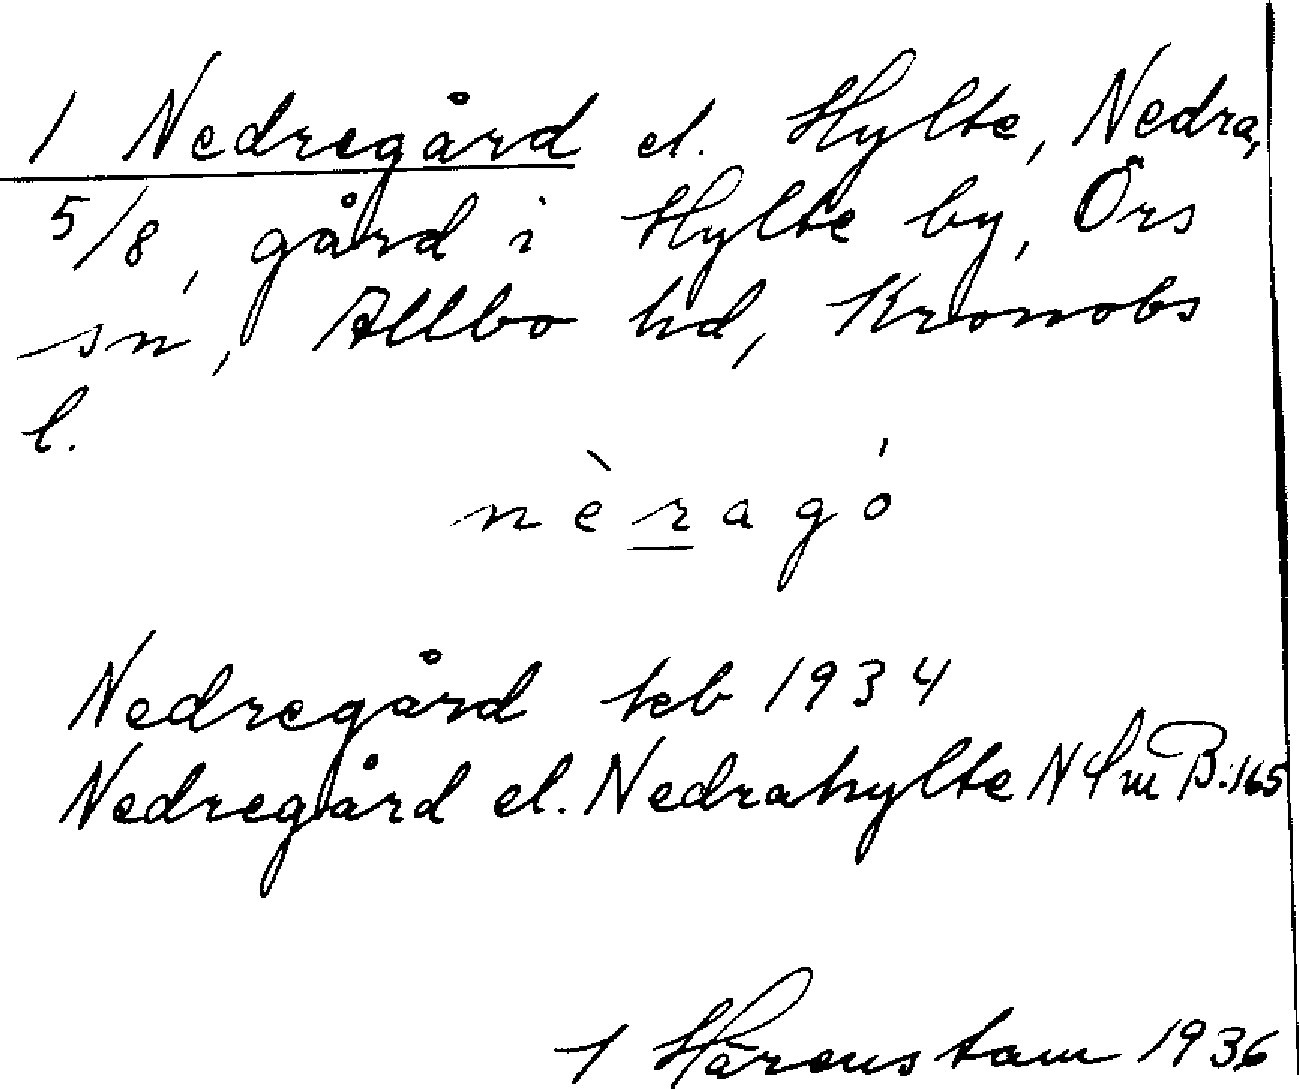 1 Nedregård el. Hylte, Nedra,
5/8, gård i Hylte by, Örs
sn, Allbo hd, Kronobs
l.
nèragó
Nedregård heb 1934
Nedregård el. Nedrahylte N Sm B:165
Härenstam 1936